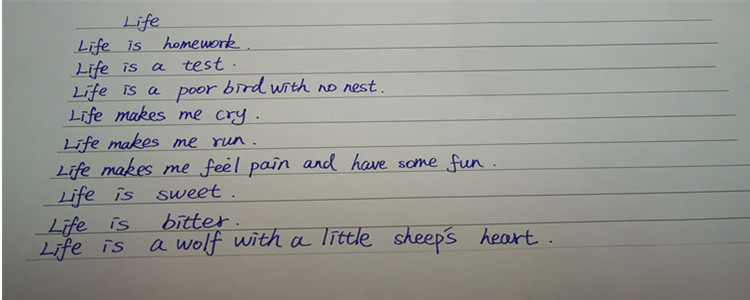 Life
Life is homework.
Life is a test.
Life is a poor bird with no nest.
Life makes me cry.
Life makes me run.
Life makes me feel pain and have some fun.
Life is sweet.
Life is bitter.
Life is a wolf with a little sheep's heart.